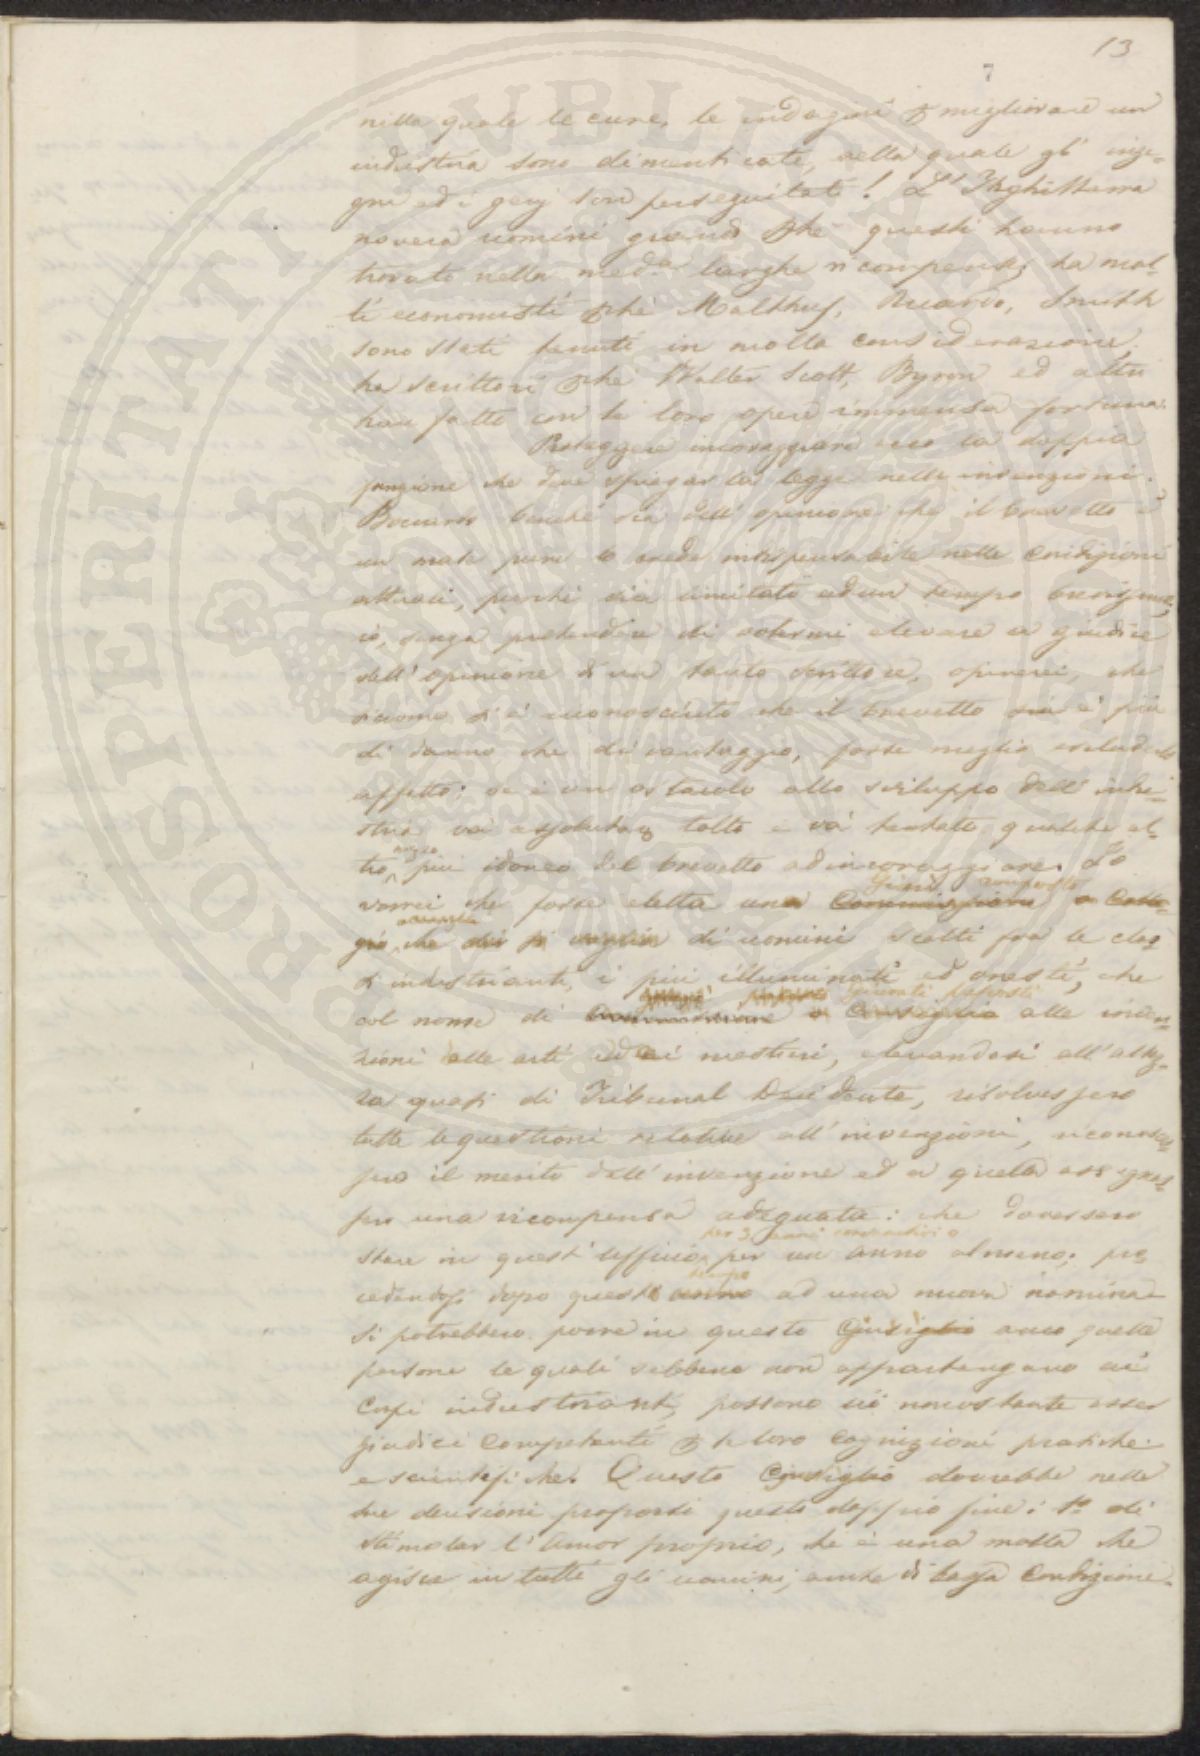 13
7
nella quale le cure, le indagini p migliorare un
industria sono dimenticate, nella quale gl' inge-
gni ed i genj son perseguitati! L' Inghilterra
novera uomini grandi pchè questi hanno
trovato nella med.a larghe ricompense, ha mol-
ti economisti pchè Malthus, Ricardo, Smith
sono stati tenuti in molta considerazione,
ha scrittori pchè Walter Scott, Byron ed altri
han fatto con le loro opere immensa fortuna.
Proteggere incoraggiare ecco la doppia
funzione che deve spiegar la legge nelle invenzioni.
Boccardo benchè sia dell' opinione che il brevetto è
un male pure lo crede indispensabile nelle condizioni
attuali, purchè sia limitato ad un tempo
io, senza pretendere di volermi elevare a giudice
dell' opinione d' un tanto scrittore, opinerei, che
siccome si è riconosciuto che il brevetto sia è più
di danno che di vantaggio, forse meglio escluderlo
affatto; se è un ostacolo allo sviluppo dell' indu-
stria va tolto e va tentato qualche al-
tro mezzo più idoneo del brevetto ad incoraggiare. Io
Giurì composto
vorrei che fosse eletta una Commissione o Consi-
glio che di uomini scelti fra le class
d' industrianti, i più illuminati ed onesti, che
giurati preposti
col nome di Commissione o Consiglio alle inven-
zioni alle arti ed ai mestieri, elevandosi all' altez-
za quasi di Tribunal Decidente, risolvessero
tutte le questioni relative all' invenzioni, riconosces-
sero il merito dell' invenzione ed a quella assegnas-
sero una ricompensa adeguata: che dovessero
per 3 anni consecutivi o
stare in quest' ufficio per un anno almeno; pro-
tempo
cedendosi dopo questo anno ad una nuova nomina
Si potrebbero porre in questo Consiglio anco quelle
persone le quali sebbene non appartengano ai
Corpi industrianti, possono ciò nonostante esser
giudici competenti p le loro cognizioni pratiche
e scientifiche. Questo Consiglio dovrebbe nelle
sue decisioni proporsi questo doppio fine: 1.o di
stimolar l' amor proprio, che è una molla che
agisce in tutti gli uomini, anche di bassa condizione.
PROSPERITATI PVBLICAE